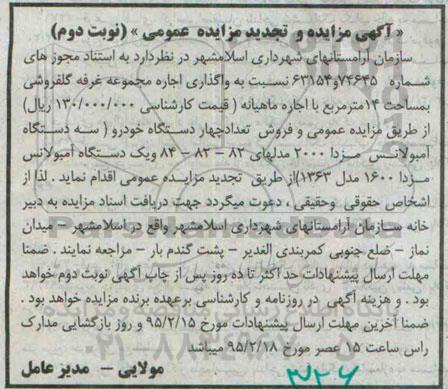 « آگهی مزایده و تجدید مزایده عمومی » (نوبت دوم)
سازمان آرامستانهای شهرداری اسلامشهر در نظردارد به استناد مجوز های
شماره ۷۴۶۴۵و۶۳۱۵۴ نسبت به واگذاری اجاره مجموعه غرفه گلفروشی
بمساحت ۱۴مترمربع با اجاره ماهیانه ( قیمت کارشناسی ۱۳۰/۰۰۰/۰۰۰ ریال)
از طریق مزایده عمومی و فروش تعدادچهار دستگاه خودرو ( سه دستگاه
آمبولانس مزدا ۲۰۰۰ مدلهای ۸۲ – ۸۳ – ۸۴ ویک دستگاه آمبولانس
مزدا ۱۶۰۰ مدل ۱۳۶۳)از طریق تجدید مزایده عمومی اقدام نماید . لذا از
اشخاص حقوقی وحقیقی ، دعوت میگردد جهت دریافت اسناد مزایده به دبیر
خانه سازمان آرامستانهای شهرداری اسلامشهر واقع در اسلامشهر – میدان
نماز – ضلع جنوبی کمربندی الغدیر – پشت گندم بار – مراجعه نمایند . ضمنا
مهلت ارسال پیشنهادات حد اکثر تا ده روز پس از چاپ آگهی نوبت دوم خواهد
بود . و هزینه آگهی در روزنامه و کارشناسی برعهده برنده مزایده خواهد بود .
ضمنا آخرین مهلت ارسال پیشنهادات مورخ ۹۵/۲/۱۵ و روز بازگشایی مدارک
راس ساعت ۱۵ عصر مورخ ۹۵/۲/۱۸ میباشد
مولایی – مدیر عامل
۳۲۶